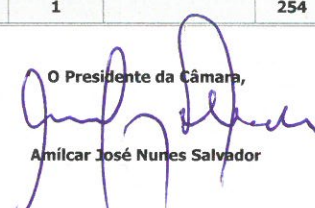 1 254
O Presidente da Câmara,
Amílcar José Nunes Salvador